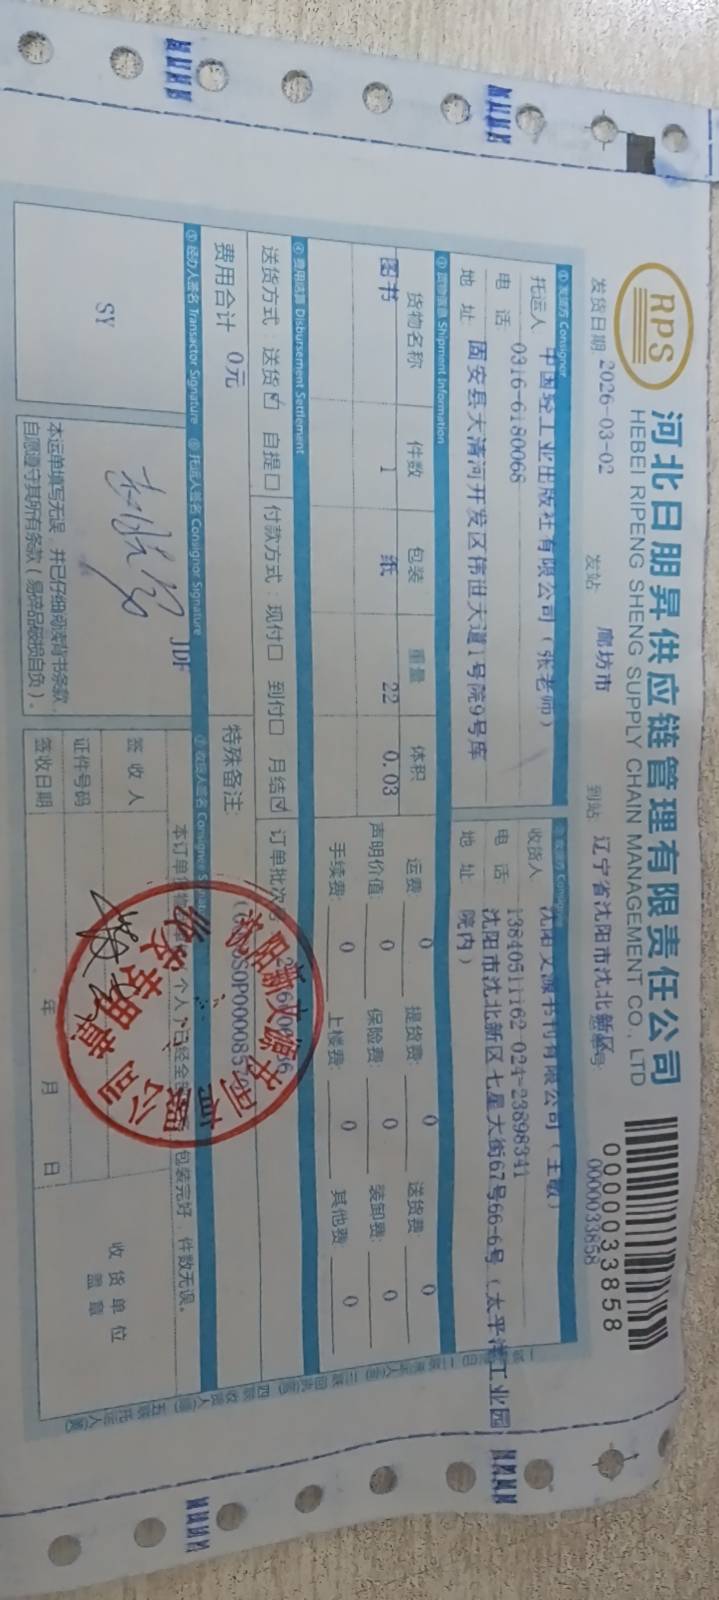 RPS
河北日朋昇供应链管理有限责任公司
HEBEI RIPENG SHENG SUPPLY CHAIN MANAGEMENT CO., LTD
0000033858
发货日期 2026-03-02 发站 廊坊市 到站 辽宁省沈阳市沈北新区 0000033858
① 发货方 Consignor
托运人 中国轻工业出版社有限公司（张老师）
电 话 0316-6180068
地 址 固安县大清河开发区伟世大道1号院9号库
② 收货方 Consignee
收货人 沈阳文源书刊有限公司（王敏）
电 话 13840511162-024-23898341
地 址 沈阳市沈北新区七星大街67号66-6号（太平洋工业园院内）
③ 货物信息 Shipment Information
货物名称 件数 包装 重量 体积
图书 1 纸 22 0.03
运费: 0 提货费: 0 送货费: 0
声明价值: 0 保险费: 0 装卸费: 0
手续费: 0 上楼费: 0 其他费: 0
④ 费用结算 Disbursement Settlement
送货方式：送货☑ 自提☐ 付款方式：现付☐ 到付☐ 月结☑ 订单批次号
费用合计 0元 特殊备注:
⑤ 经办人签名 Transactor Signature
SY
⑥ 托运人签名 Consignor Signature
JDF
本运单填写无误，并已仔细阅读背书条款，
自愿遵守其所有条款（易碎品破损自负）。
⑦ 收货人签名 Consignee Signature
包装完好，件数无误。
签 收 人
证件号码
签收日期 年 月 日
收 货 单 位
盖 章